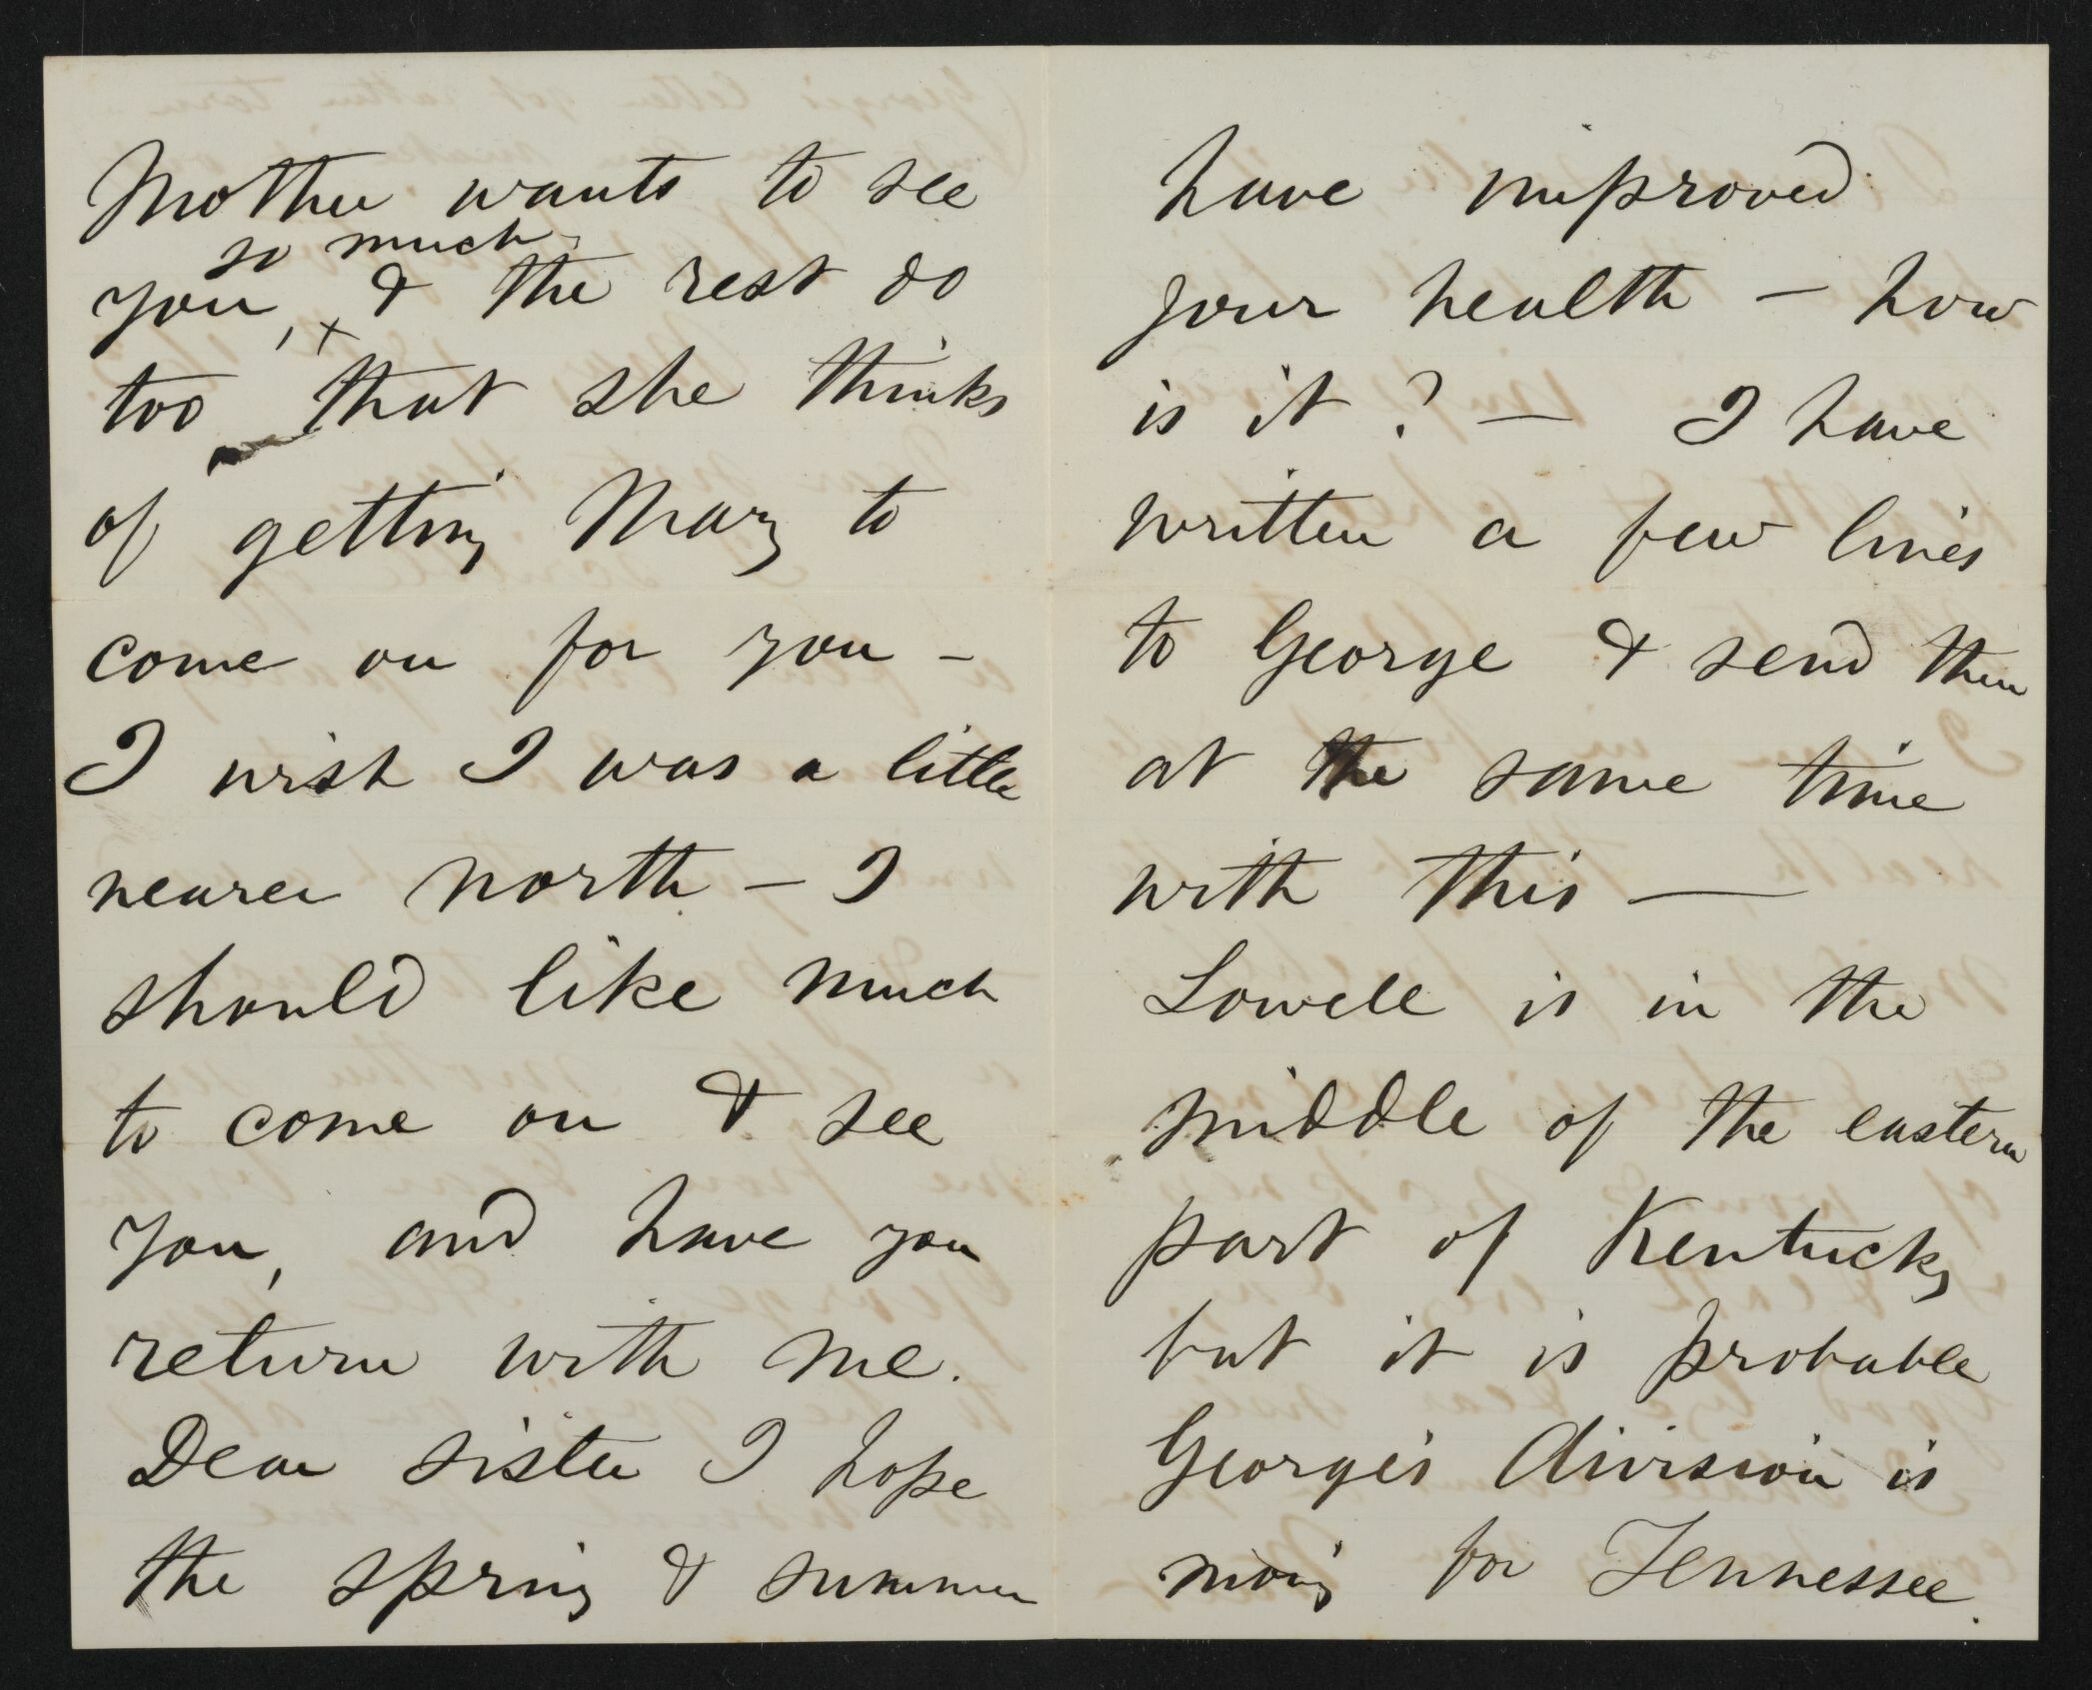 Mother wants to see
so much
you, x & the rest do
too that she thinks
of getting Mary to
come on for you –
I wish I was a little
nearer north – I
should like much
to come on & see
you, and have you
return with me.
Dear sister I hope
the spring & summer
have improved
your health – how
is it? – I have
written a few lines
to George & send them
at the same time
with this —
Lowell is in the
middle of the eastern
part of Kentucky
but it is probable
George's division is
moving for Tennessee.